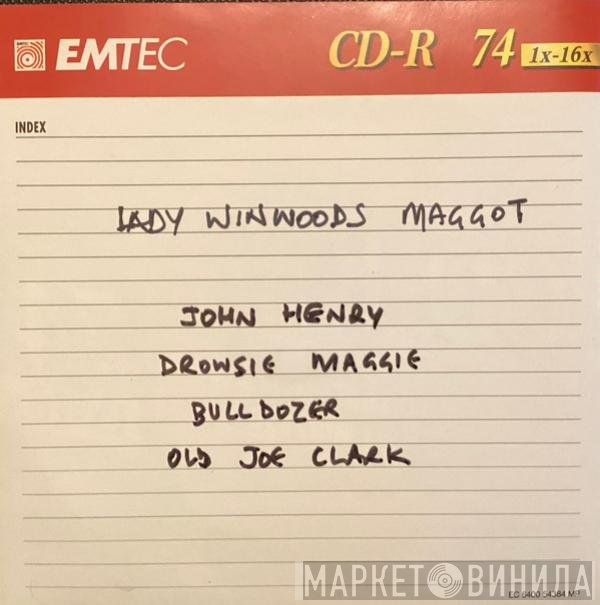 EMTEC CD-R 74 1x-16x
INDEX
LADY WINWOODS MAGGOT
JOHN HENRY
DROWSIE MAGGIE
BULLDOZER
OLD JOE CLARK
МАРКЕТ ВИНИЛА